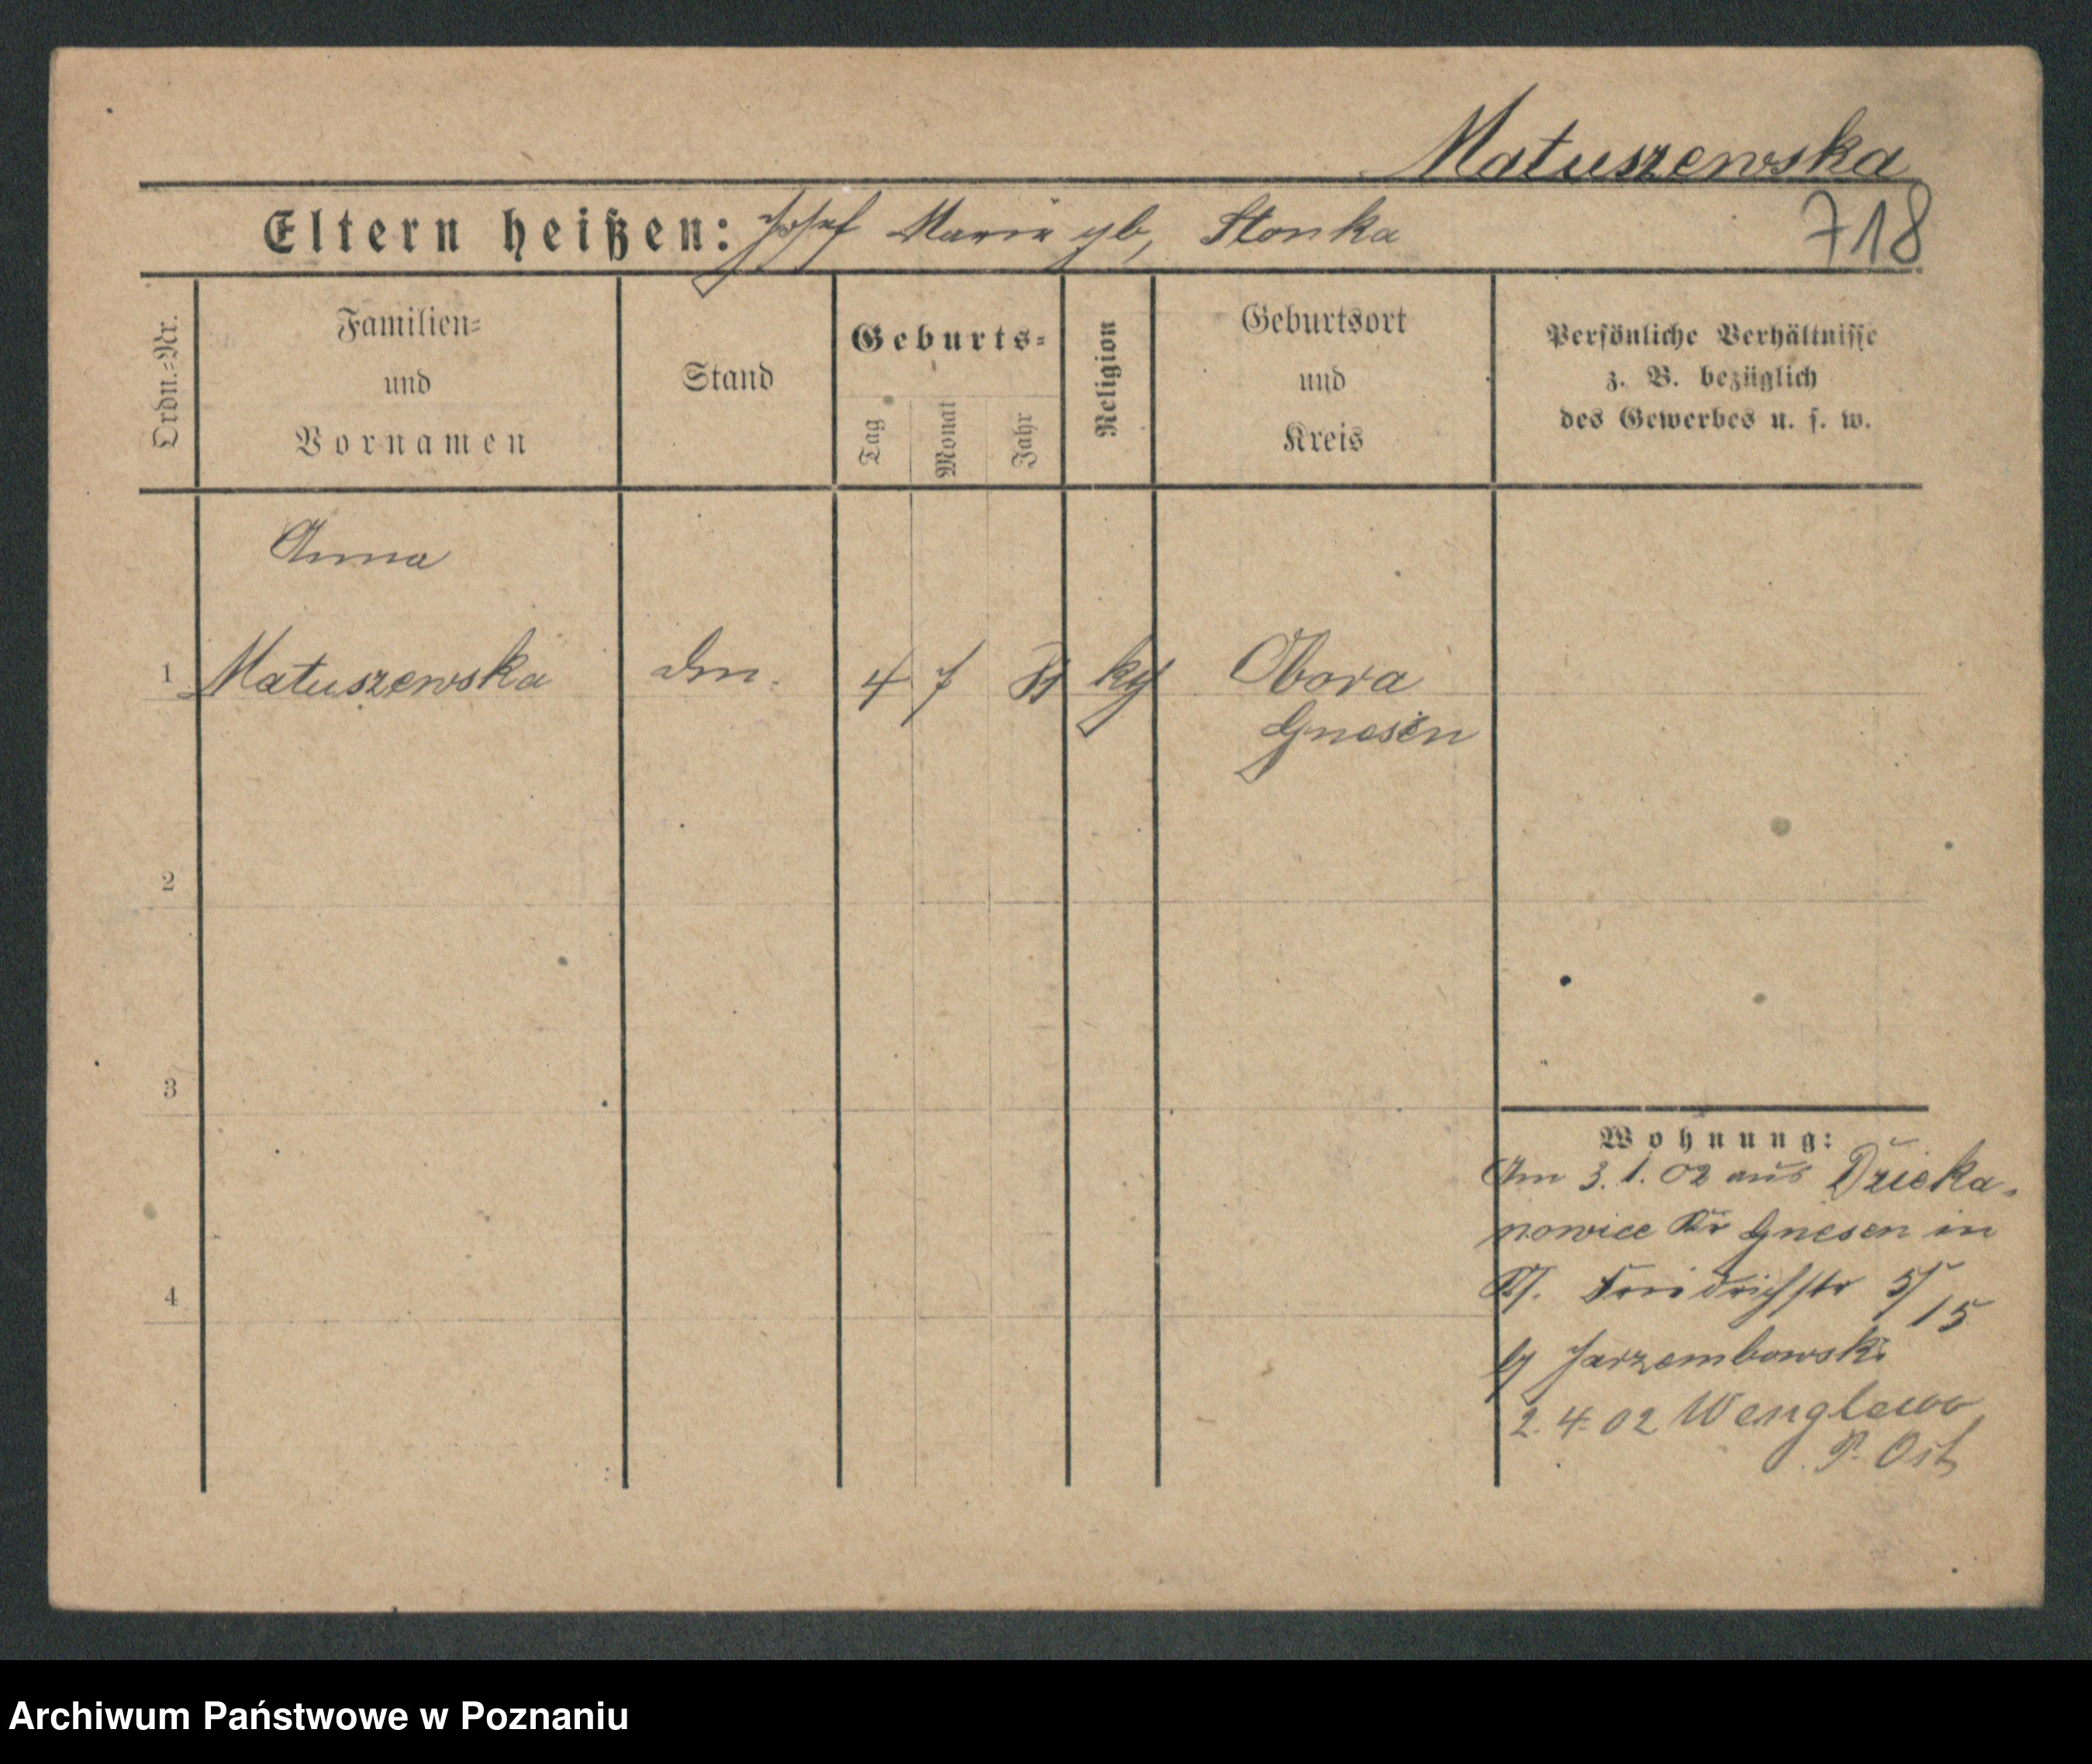 Matuszewska
Eltern heißen: Josef Maria gb, Stonka
718
Ordn.=Nr.
Familien=
und
Vornamen
Stand
Geburts=
Tag
Monat
Jahr
Religion
Geburtsort
und
Kreis
Persönliche Verhältnisse
z. B. bezüglich
des Gewerbes u. s. w.
Anna
1 Matuszewska 4 7 Obora
Gnesen
2
3
4
Wohnung:
Am 3.1.02 aus Dzieka-
nowice Kr Gnesen in
Friedrichstr 5/
15
Jarzembowski
2.4.02 Wenglewo
P. Ost
Archiwum Państwowe w Poznaniu